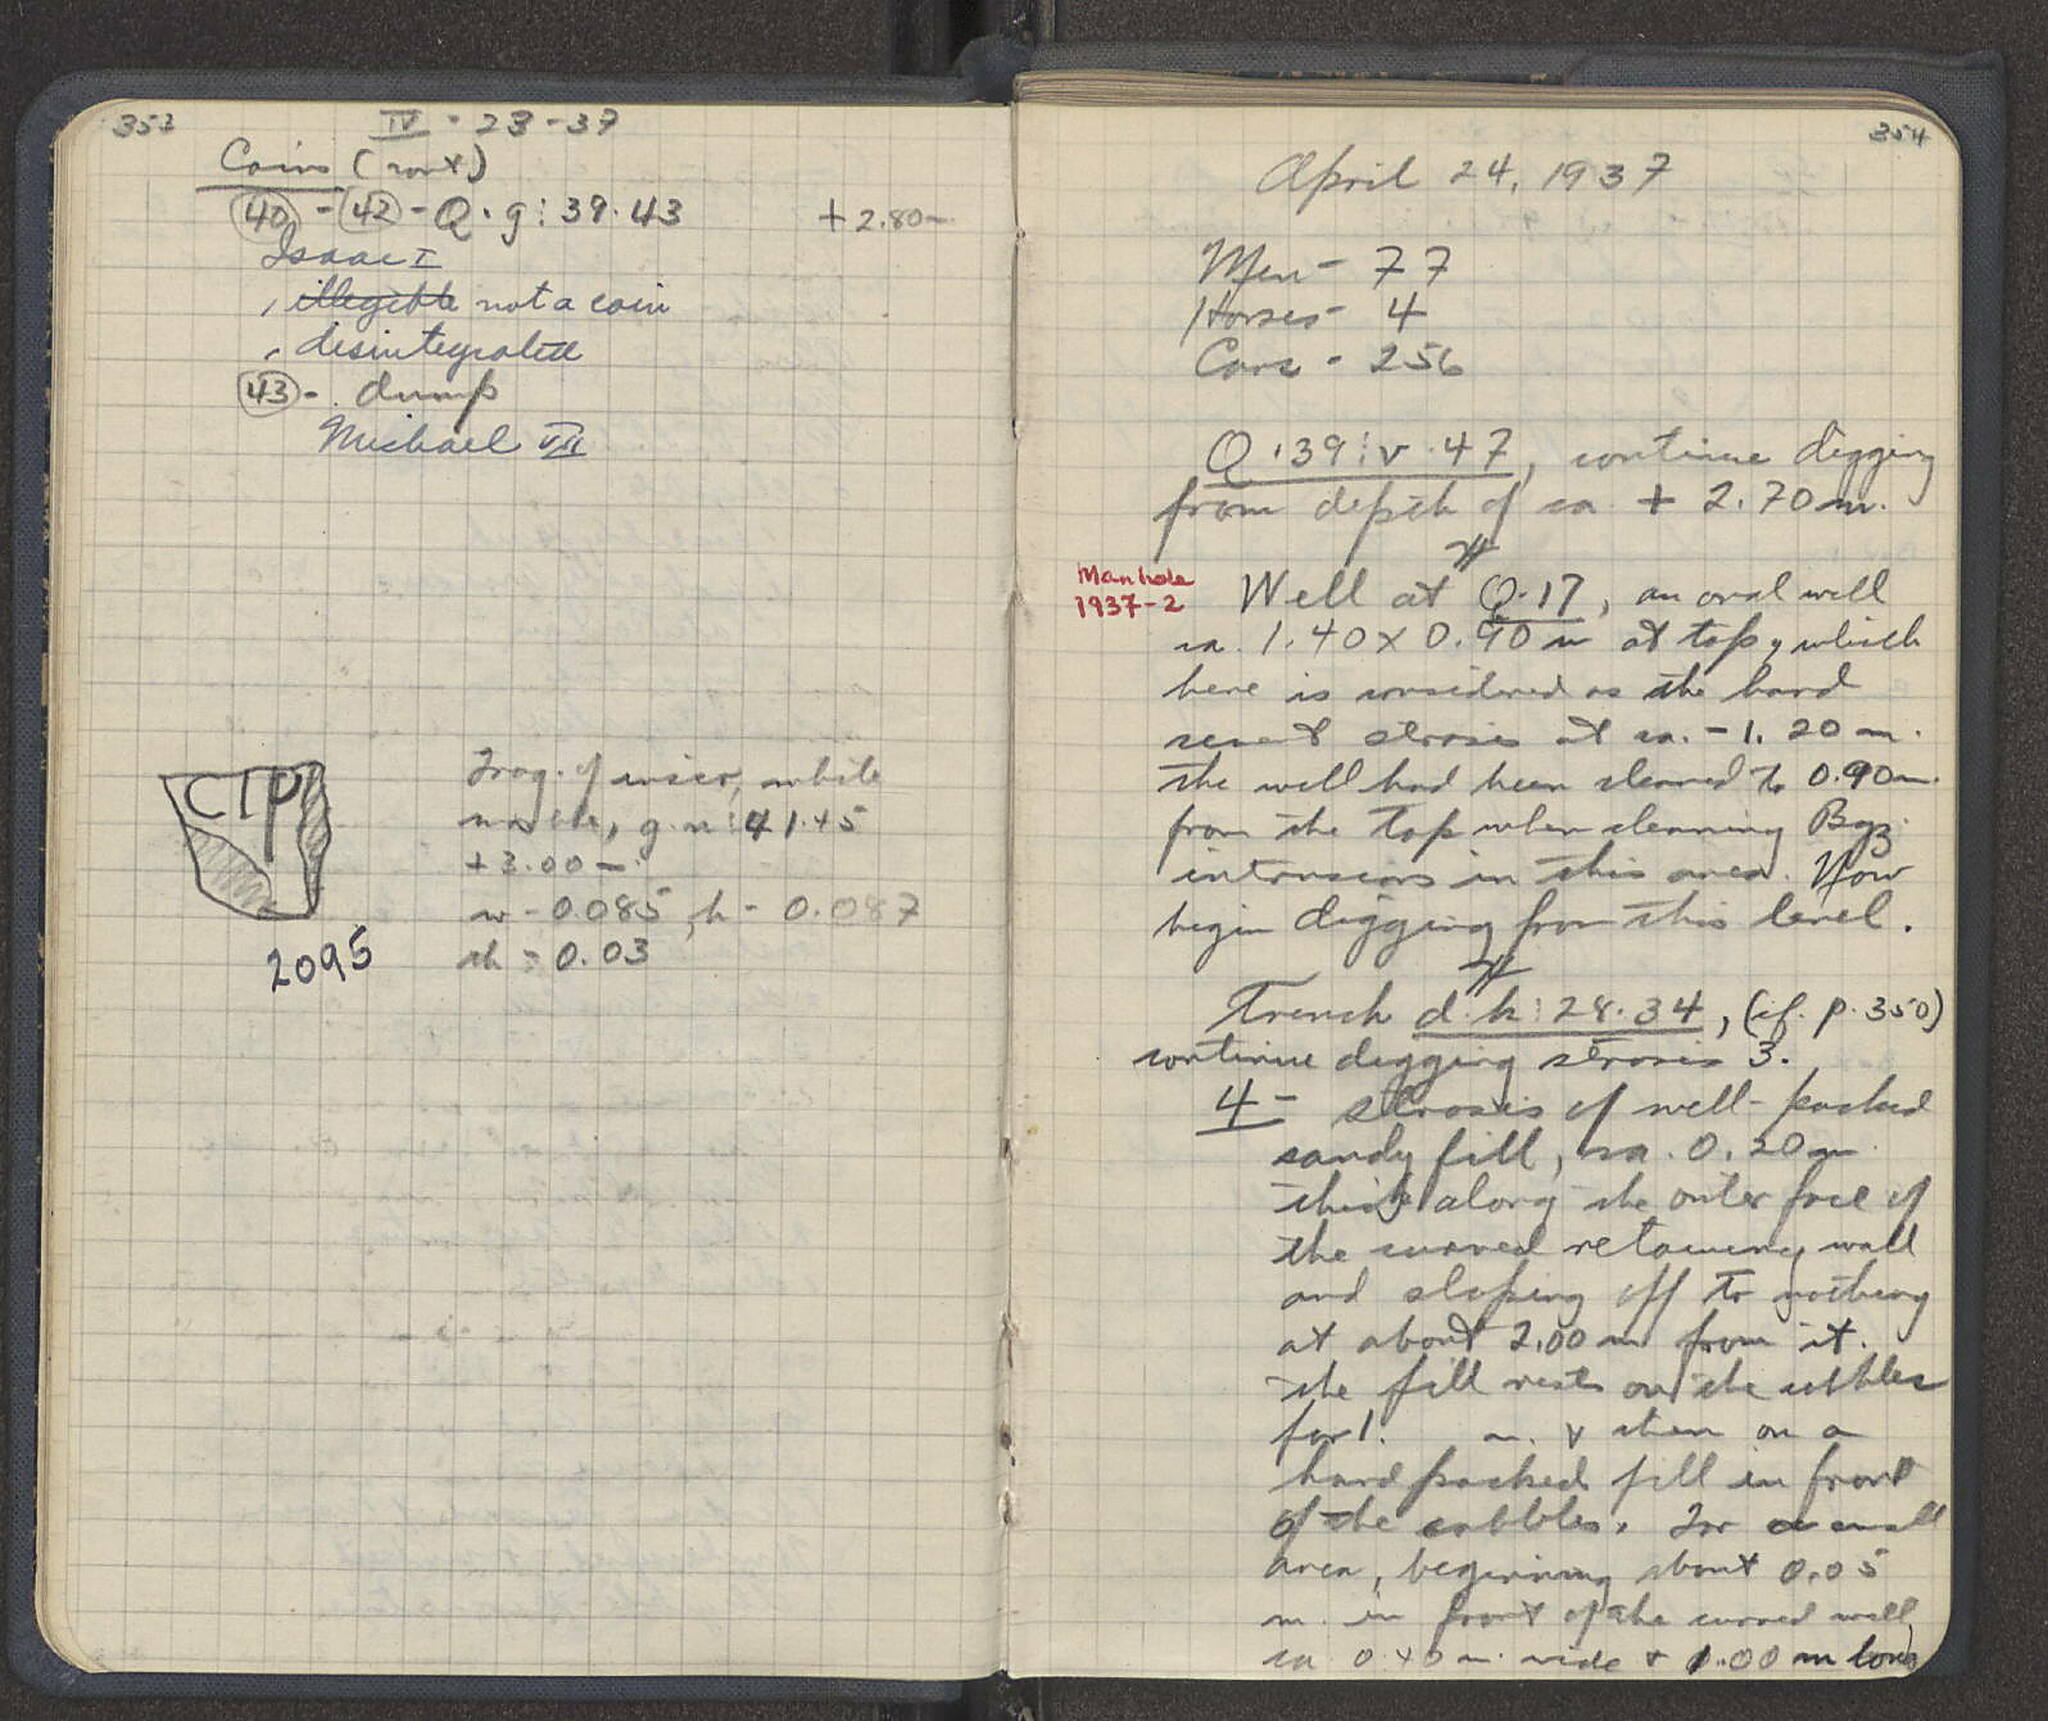 353
IV - 23 - 37
Coins (cont)
40 - 42 - Q·g:39·43 +2.80m
Isaac I
, illegible not a coin
, disintegrated
43 - dump
Michael VII
CIP
Frag. of inscr, white
marble, g·n:41·45
+3.00m.
w - 0.085, h - 0.087
th - 0.03
2095
354
April 24, 1937
Men - 77
Horses - 4
Cars - 256
Q·39:v·47, continue digging
from depth of ca. + 2.70m.
Manhole
1937-2
Well at Q·17, an oval well
ca. 1.40 x 0.90 m at top, which
here is considered as the hard
cement strosis at ca. -1.20 m.
the well had been cleared to 0.90m.
from the top when cleaning Byz.
intrusions in this area. Now
begin digging from this level.
Trench d·k:28·34, (cf. p. 350)
continue digging strosis 3.
4 - strosis of well-packed
sandy fill, ca. 0.20m
thick along the outer face of
the curved retaining wall
and sloping off to nothing
at about 2.00 m from it.
the fill rests on the cobbles
for 1. m. & then on a
hard packed fill in front
of the cobbles. For a small
area, beginning about 0.05
m. in front of the curved wall,
ca 0.40 m. wide & 1.00 m long